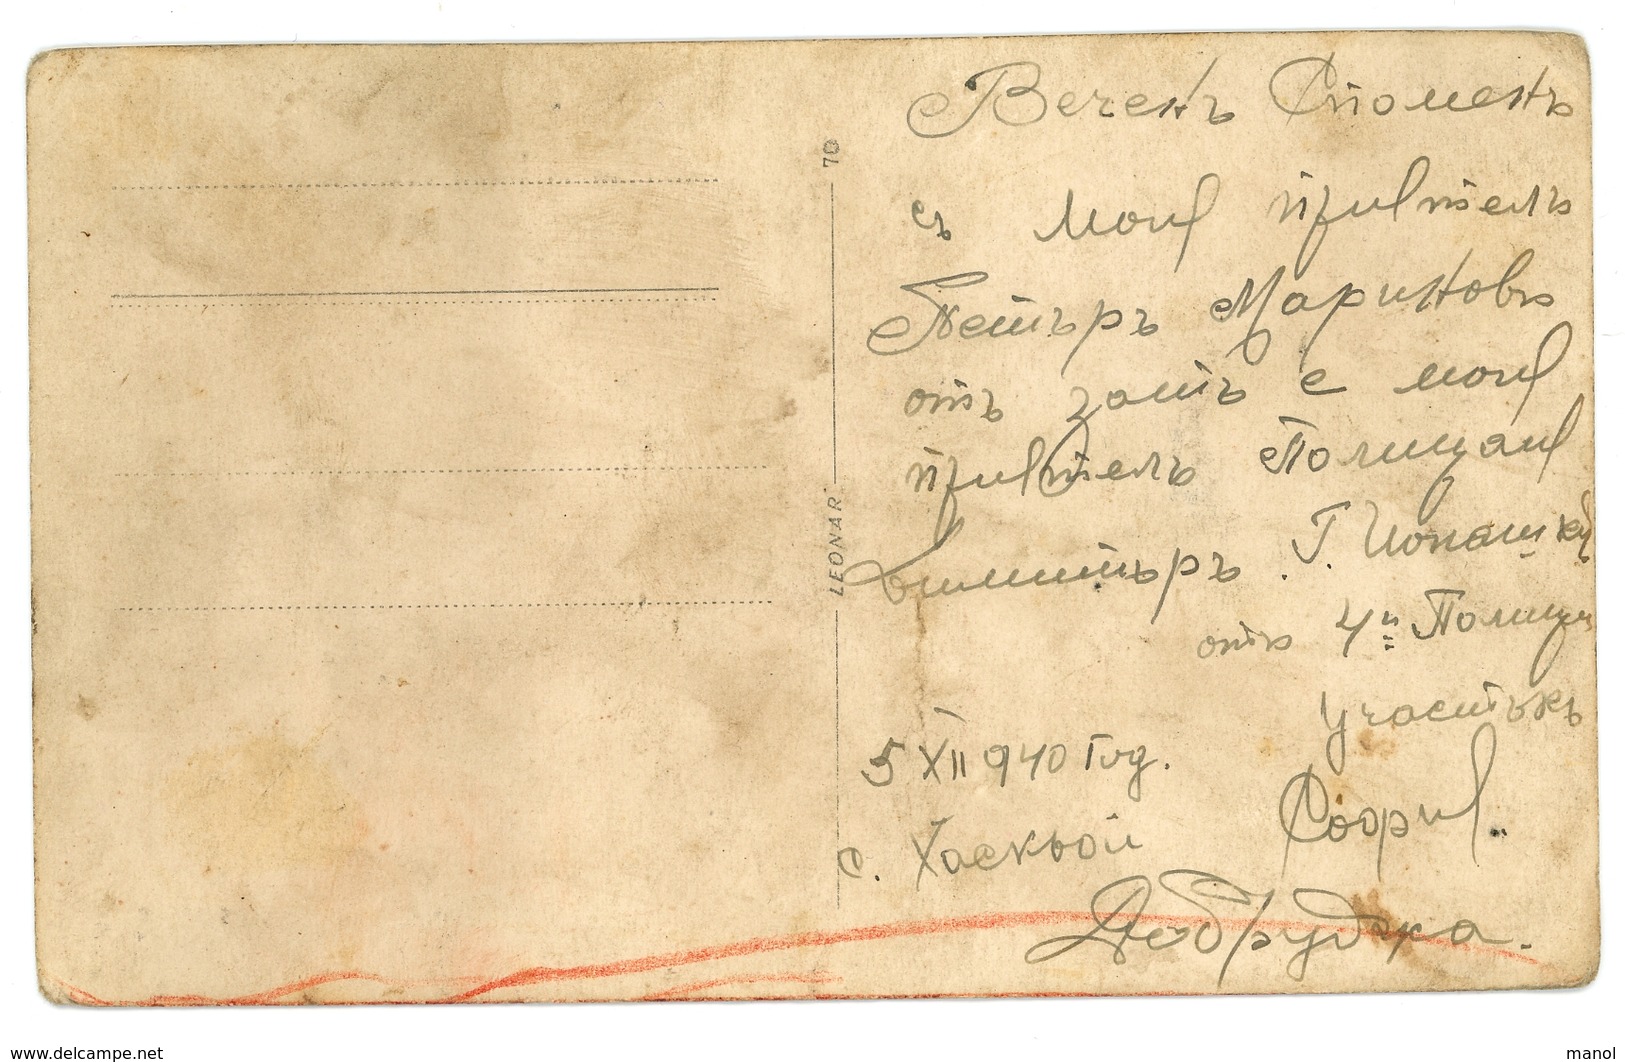 Веченъ Споменъ
съ моя приятель
Петъръ Мариновъ
отъ запъ с моя
приятель Полицая
Димитъръ . Г.
отъ 4й Полиц.
участъкъ
5 XII 940 год.
София.
с. Хаскьой
Добруджа.
LEONAR
70
www.delcampe.net
manol